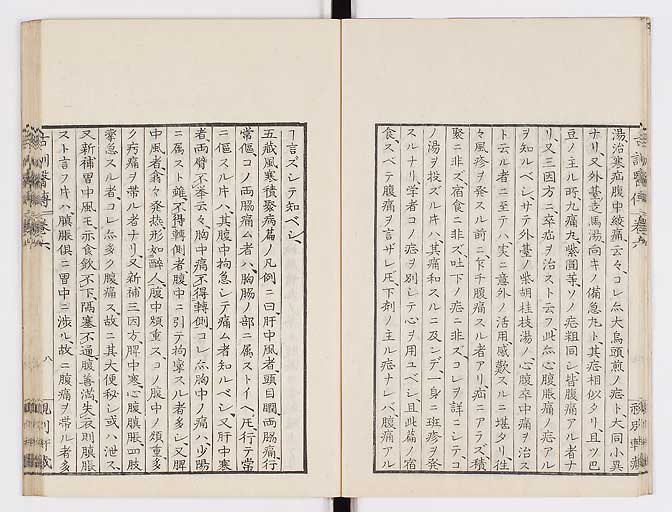 湯治寒疝腹中絞痛云々、コレ亦大烏頭煎ノ症ト、大同小異
ナリ、又外臺走馬湯向キノ備急丸ト其症相似タリ、且ツ巴
豆ノ主ル所、九痛丸、紫圓等、ソノ症粗同シ、皆腹痛アル者ナ
リ、又三因方ニ、卒疝ヲ治スト云フ、此亦心腹脹痛ノ症アル
ヲ知ルベシ、サテ外臺ノ柴胡桂枝湯ノ心腹卒中痛ヲ治ス
ト云ル者ニ至テハ、実ニ意外ノ活用感歎スルニ堪タリ、往
々風疹ヲ発スル前ニ、乍チ腹痛スル者アリ、疝ニアラズ、積
聚ニ非ズ、宿食ニ非ズ、吐下ノ症ニ非ズ、コレヲ詳ニシテ、コ
ノ湯ヲ投ズル片ハ、其痛和スルニ及ンデ、一身ニ班疹ヲ発
スルナリ、学者コノ症ヲ別シテ心ヲ用ユベシ、且此篇ノ宿
食、スベテ腹痛ヲ言ザレ𪜈、下剤ノ主ル症ナレバ、腹痛アル
ヿ言ズシテ知ベシ、
五藏風寒積聚病篇ノ凡例ニ曰、肝中風者、頭目瞤、両脇痛、行
常傴、コノ両脇痛ム者ハ、胸脇ノ部ニ属ストイヘ𪜈、行テ常
ニ傴スル片ハ、其腹中拘急シテ痛ム者知ルベシ、又肝中寒
者、両臂不挙云々、胸中痛不得轉側、コレ亦胸中ノ痛ハ、少陽
ニ属スト雖、不得轉側者、腹中ニ引テ拘攣スル者多シ、又脾
中風者、翕々発熱、形如醉人、腹中煩重、スコノ腹中ノ煩重、多
ク疞痛ヲ帯ル者ナリ、又新補三因方、脾中寒、心腹䐜脹、四肢
攣急スル者、コレ亦多ク腹痛ス、故ニ其大便秘シ、或ハ泄ス、
又新補胃中風モ亦食飲不下、隔塞不通、腹善満、失衣則䐜脹
スト言フ片ハ、䐜脹倶ニ胃中ニ渉ル、故ニ腹痛ヲ帯ル者多